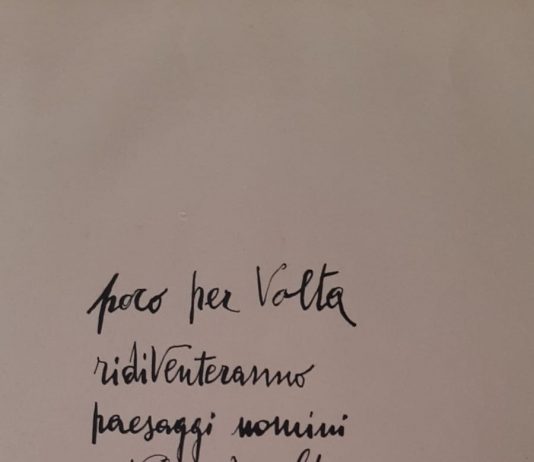 poco per Volta
ridiVenteranno
paesaggi uomini